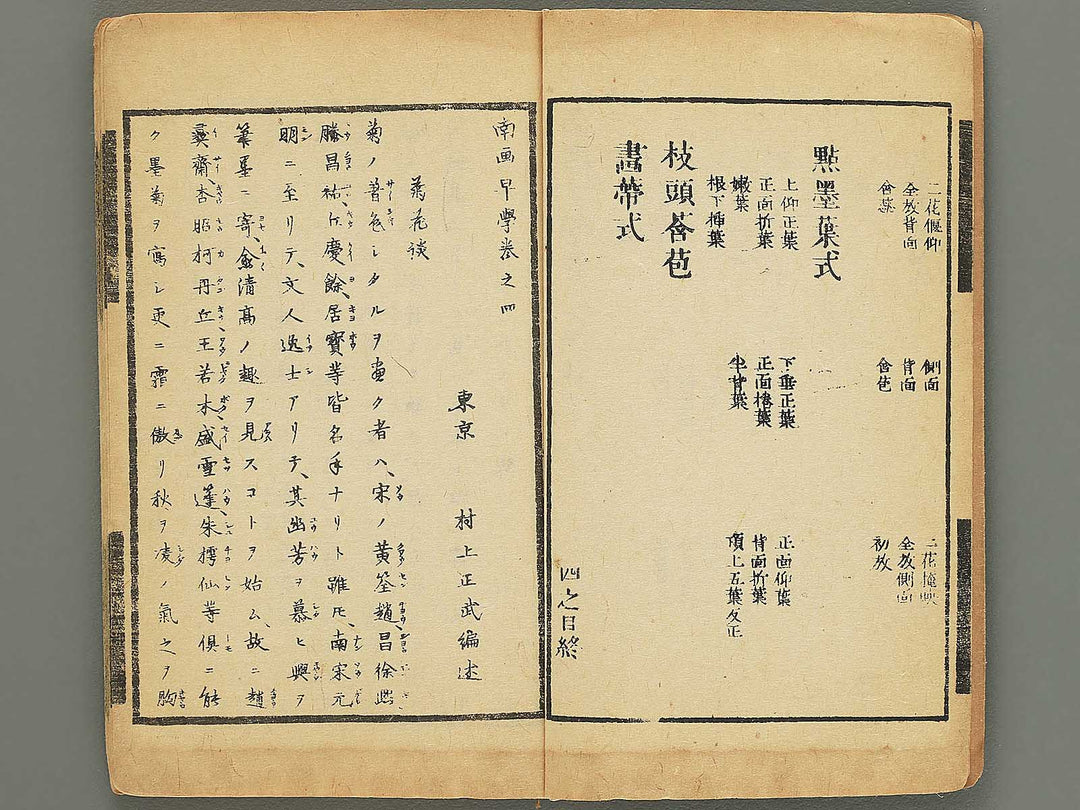 二花偃仰　側面　二花掩映
全放背面　背面　全放側面
含蕊　含苞　初放
點墨葉式
上仰正葉　下垂正葉　正面仰葉
正面折葉　正面捲葉　背面折葉
嫩葉
根下插葉　頂上五葉反正
枝頭蓓苞
畫蒂式
四之目終
南画早學卷之四
東京　村上正武編述
菊花談
菊ノ著色シタルヲ画ク者ハ、宋ノ黄筌趙昌徐熙
滕昌祐、丘慶餘、居寶等皆名手ナリト雖ㇳモ、南宋元
明ニ至リテ、文人逸士アリテ、其幽芳ヲ慕ヒ興ヲ
筆墨ニ寄、僉清高ノ趣ヲ見スコトヲ始ム、故ニ趙
彝齋李昭柯丹丘王若水盛雪蓬朱樗仙等俱ニ能
ク墨菊ヲ寫シ更ニ霜ニ傲リ秋ヲ凌ノ氣之ヲ胸